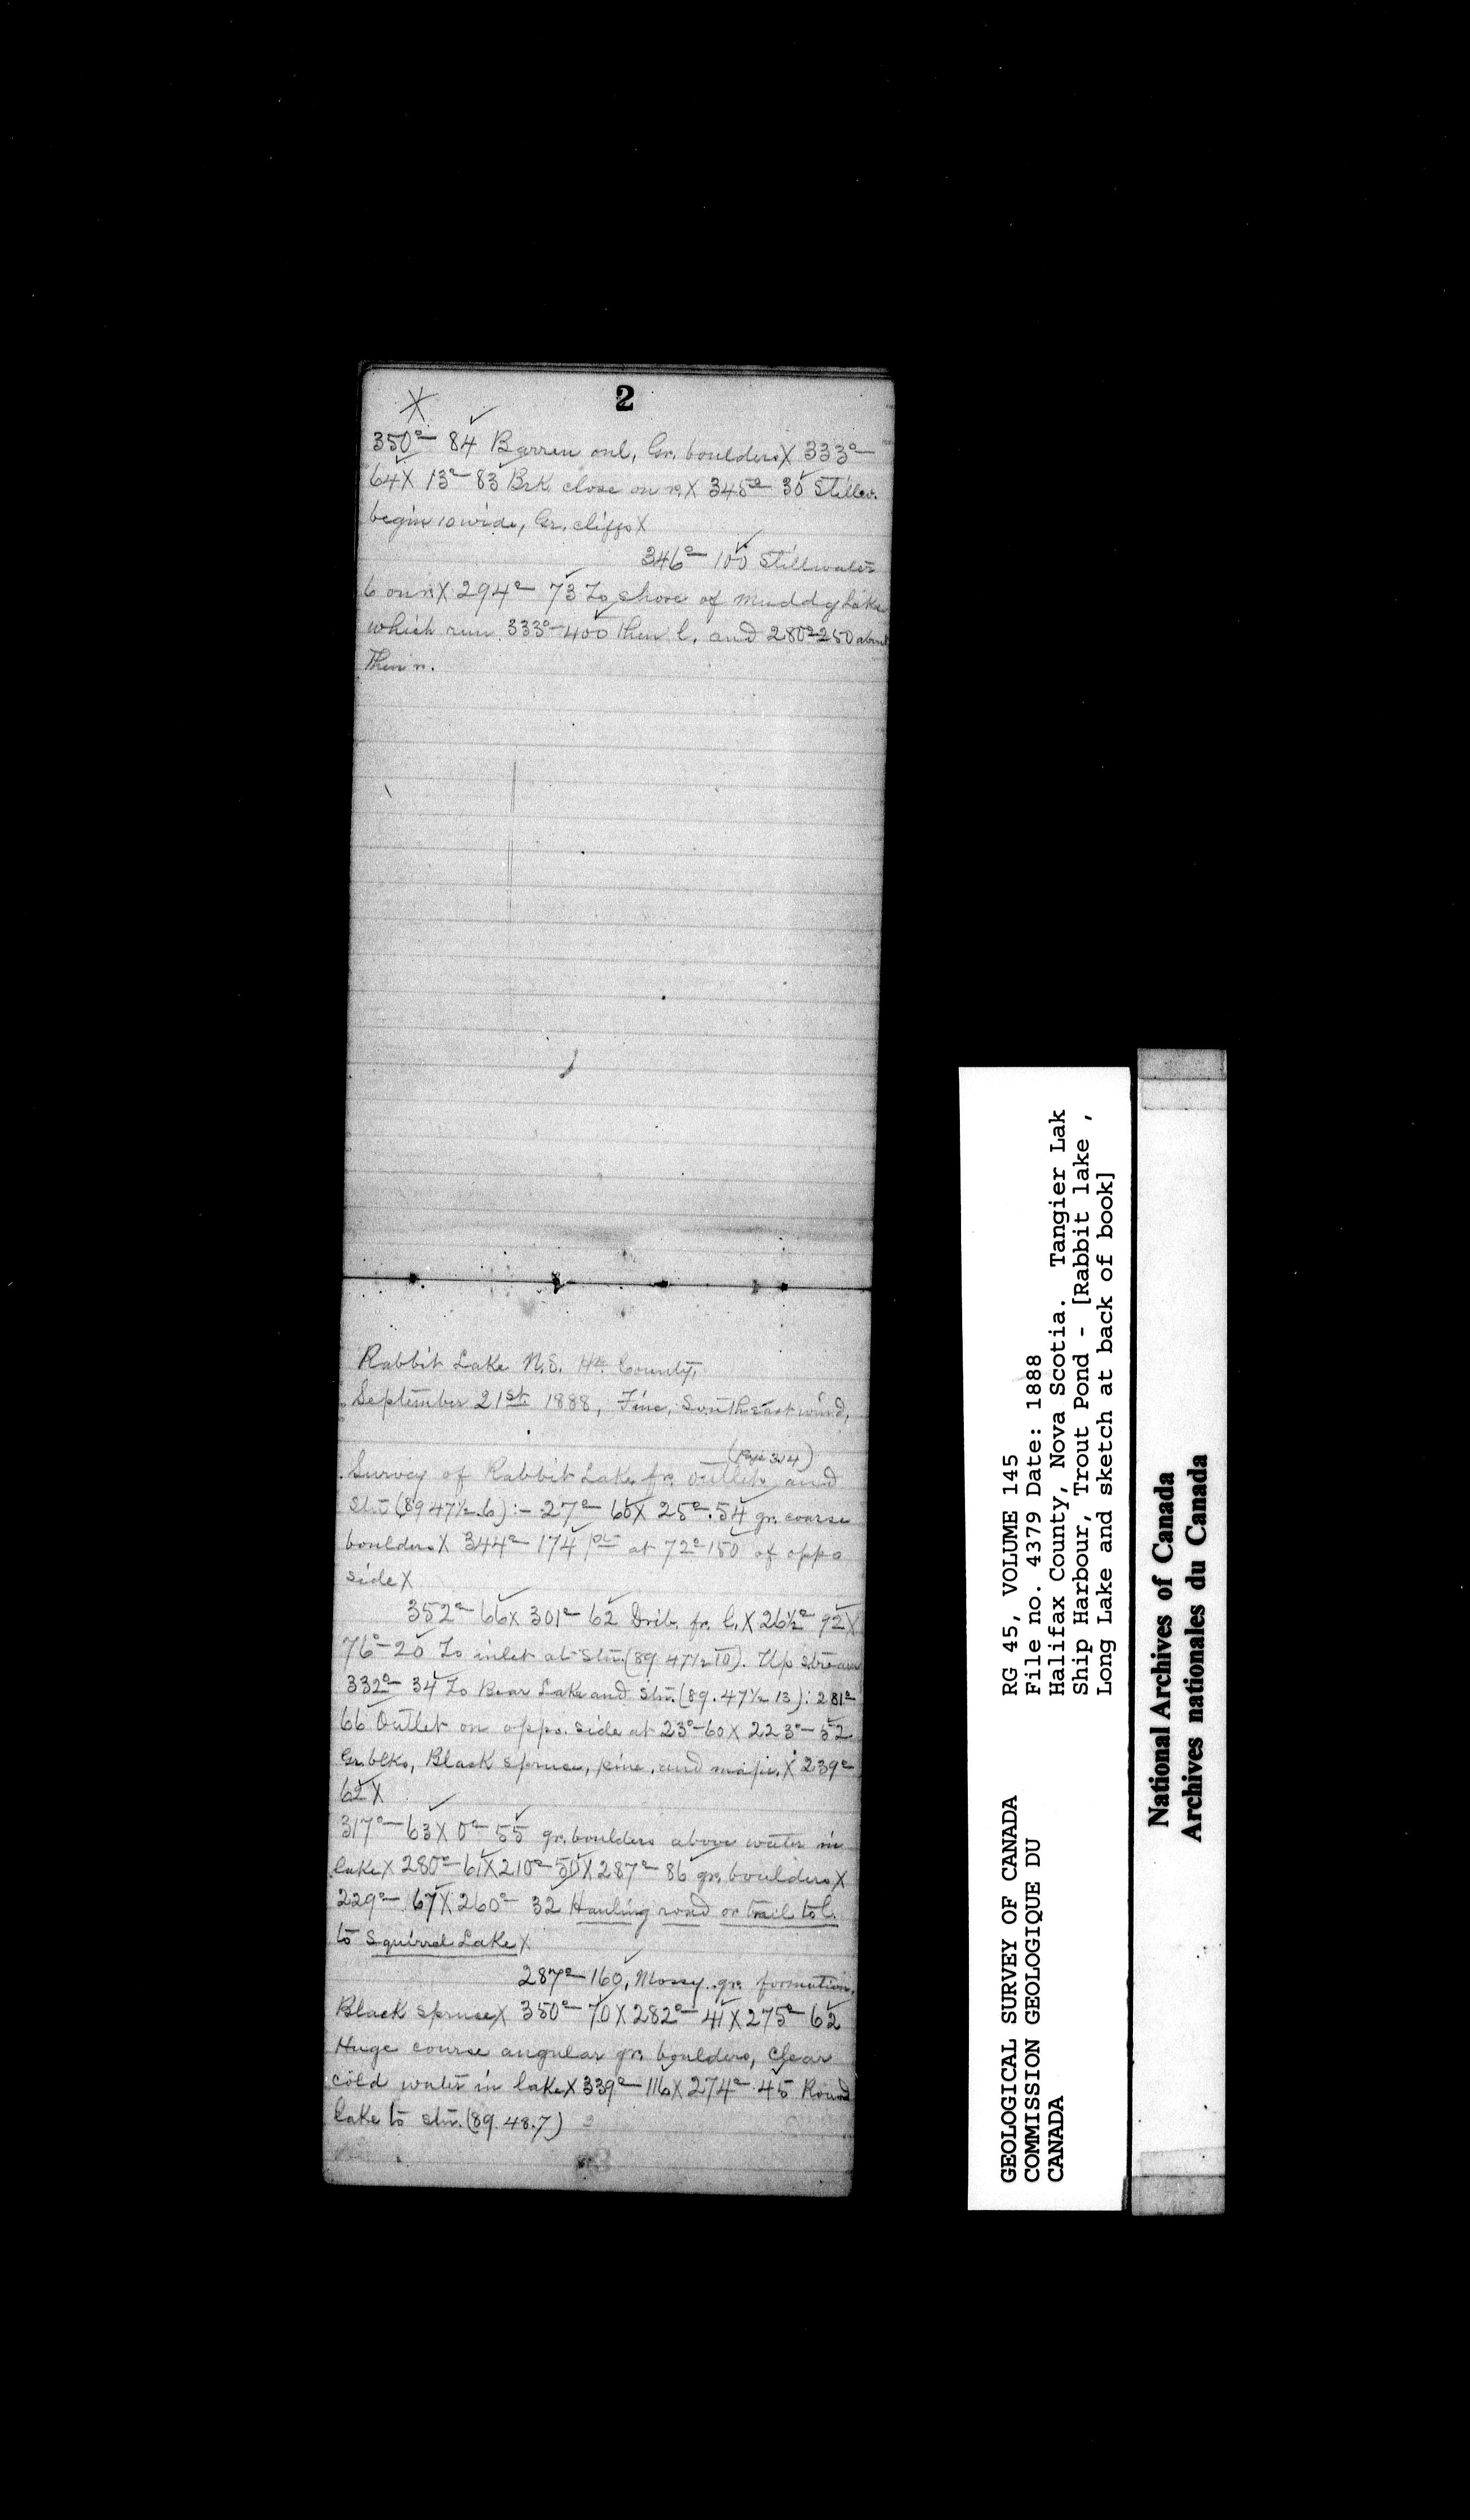 2
X
350°– 84 Barren on l, Gr. boulders X 333°–
64 X 13°– 83 Brk. close on r. X 345°– 30 Stillw.
begins 10 wide, Gr. cliffs X
346°– 100 Stillwater
6 on r. X 294°– 73 To shore of Muddy Lake
which run 333°– 400 then l. and 280°– 250 about
Then r.
Rabbit Lake N.S. Hx. County,
September 21st 1888, Fine, Southeast wind,
(Page 314)
Survey of Rabbit Lake fr. outlet and
Stn (89 47½.6) :– 27°– 60 X 25°. 54 gr. coarse
boulders X 344°– 174 pt at 72°– 150 of oppo
side X
352°– 66 X 301°– 62 fr. l. X 26½° 92 X
76°– 20 To inlet at Stn. (89 47½ 10). Up stream
332°– 34 To Bear Lake and Stn. (89. 47½ 13) : 281°
66 Outlet on oppo. side at 23°– 60 X 223°– 52
Gr. blks, Black spruce, pine, and X 239°
62 X
317°– 63 X 0°– 55 gr. boulders above water in
lake X 280°– 61 X 210°– 50 X 287°– 86 gr. boulders X
229°– 67 X 260°– 32 Hauling road or trail to l.
to Squirrel Lake X
287°– 160, Mossy gr. formation,
Black spruce X 350°– 70 X 282°– 41 X 275°– 62
Huge course angular gr. boulders, Clear
cold water in lake X 339°– 116 X 274°– 45 Round
lake to stn. (89. 48. 7)
RG 45, VOLUME 145
File no. 4379 Date: 1888
Halifax County, Nova Scotia. Tangier Lak
Ship Harbour, Trout Pond - [Rabbit lake ,
Long Lake and sketch at back of book]
GEOLOGICAL SURVEY OF CANADA
COMMISSION GEOLOGIQUE DU
CANADA
National Archives of Canada
Archives nationales du Canada